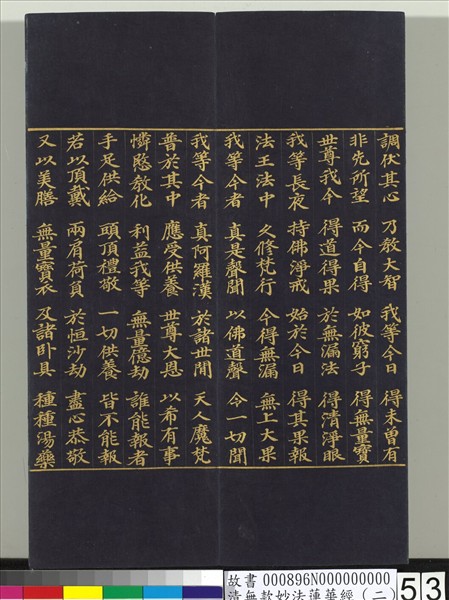 調伏其心　乃教大智　我等今日　得未曽有
非先所望　而今自得　如彼窮子　得無量寶
世尊我今　得道得果　於無漏法　得清淨眼
我等長夜　持佛淨戒　始於今日　得其果報
法王法中　久修梵行　今得無漏　無上大果
我等今者　真是聲聞　以佛道聲　令一切聞
我等今者　真阿羅漢　於諸世間　天人魔梵
普於其中　應受供養　世尊大恩　以希有事
憐愍教化　利益我等　無量億劫　誰能報者
手足供給　頭頂禮敬　一切供養　皆不能報
若以頂戴　兩肩荷負　於恒沙劫　盡心恭敬
又以美膳　無量寶衣　及諸卧具　種種湯藥
故書 000896N000000000
清無款妙法蓮華經(二)
53